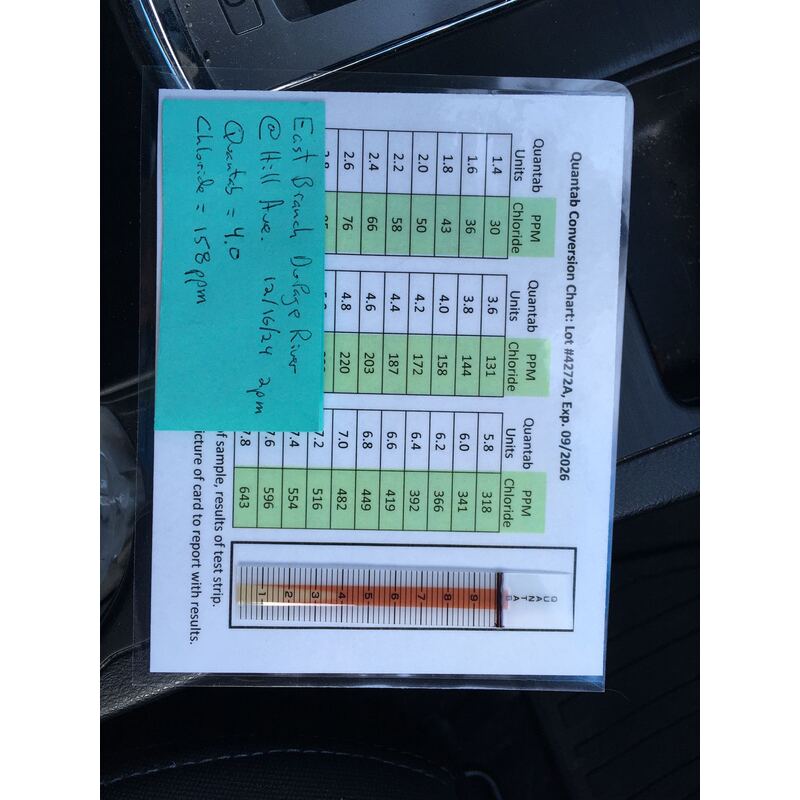 Quantab Conversion Chart: Lot #4272A, Exp. 09/2026
Quantab Units PPM Chloride
1.4 30
1.6 36
1.8 43
2.0 50
2.2 58
2.4 66
2.6 76
Quantab Units PPM Chloride
3.6 131
3.8 144
4.0 158
4.2 172
4.4 187
4.6 203
4.8 220
Quantab Units PPM Chloride
5.8 318
6.0 341
6.2 366
6.4 392
6.6 419
6.8 449
7.0 482
7.2 516
7.4 554
7.6 596
7.8 643
of sample, results of test strip.
picture of card to report with results.
East Branch DuPage River
@ Hill Ave. 12/16/24 2pm
Quantab = 4.0
Chloride = 158 ppm
QUANTAB
9
8
7
6
5
4
3
2
1